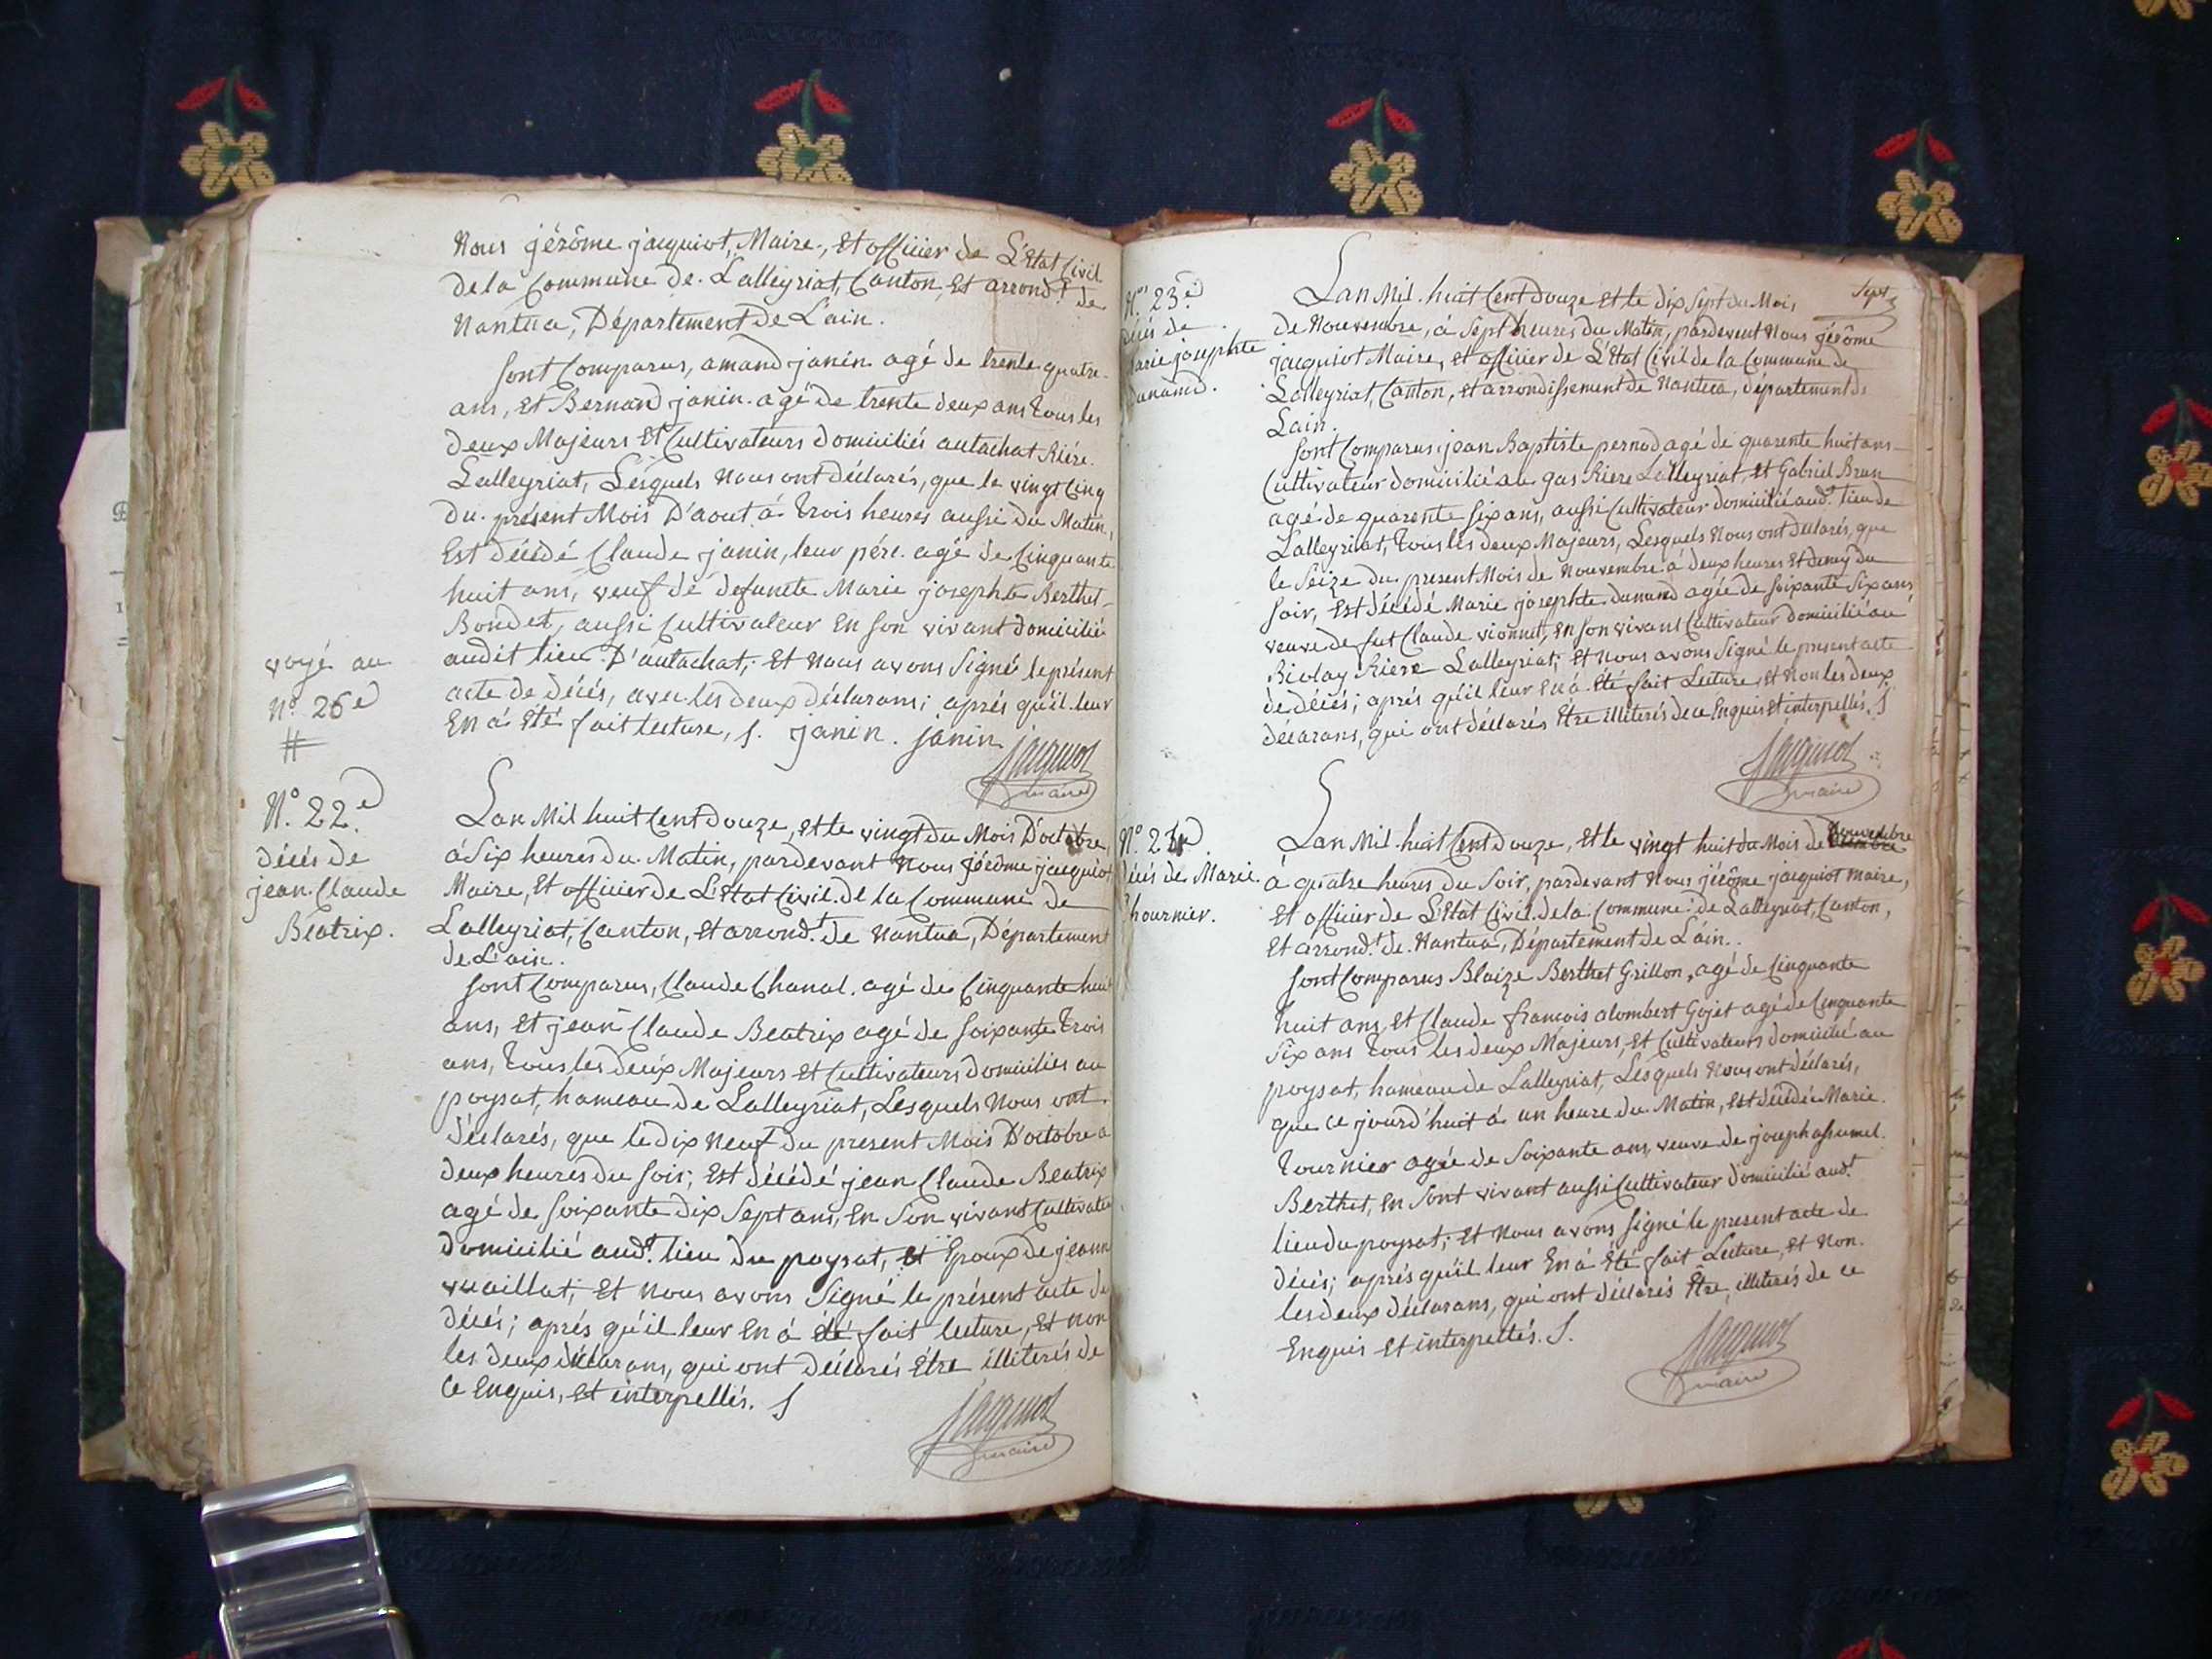 Nous jérôme jacquiot, Maire, Et officier de L'Etat Civil
de la Commune de Lalleyriat, Canton, Et arrond.t de
Nantua, Département de L'ain.
Sont Comparus, amand janin agé de trente quatre
ans, Et Bernard janin agé de trente deux ans tous les
deux Majeurs Et Cultivateurs domiciliés autachat Riére
Lalleyriat, Lesquels Nous ont déclarés, que le vingt Cinq
du présent Mois D'aout á trois heures aussi du Matin,
Est décédé Claude janin, leur pére agé de Cinquante
huit ans, veuf de defuncte Marie josephte Berthet
Bondet, aussi Cultivateur En Son vivant domicilié
audit lieu D'autachat; Et Nous avons Signé le présent
acte de décés, avec les deux déclarans; aprés qu'il leur
En á Eté fait lecture, S. janin. janin
Jacquiot
maire
voyé au
N.o 26e
N.o 22e
décés de
jean Claude
Béatrix.
Lan Mil huit Cent douze, Et le vingt du Mois D'octobre,
á Six heures du Matin, pardevant Nous jérôme jacquiot
Maire, Et officier de L'Etat Civil de la Commune de
Lalleyriat, Canton, Et arrond.t de Nantua, Département
de L'ain.
Sont Comparus, Claude Chanal agé de Cinquante huit
ans, Et jean Claude Beatrix agé de Soixante trois
ans, tous les deux Majeurs Et Cultivateurs domiciliés au
poysat, hameau de Lalleyriat, Lesquels Nous ont
déclarés, que le dix Neuf du present Mois D'octobre a
deux heures du Soir; Est décédé jean Claude Beatrix
agé de Soixante dix Sept ans, En Son vivant Cultivateur
domicilié aud.t lieu du poysat, Et Epoux de jeanne
vuaillat; Et Nous avons Signé le présent acte de
décés; aprés qu'il leur En á été fait lecture, Et non
les deux déclarans, qui ont déclarés Etre illiterés de
Ce Enquis, Et interpellés. S
Jacquiot
maire
Sept
N.o 23e
décés de
Marie josephte
dunand.
Lan Mil huit Cent douze Et le dix Sept du Mois
de Nouvembre, á Sept heures du Matin, pardevent Nous jérôme
jacquiot Maire, Et officier de L'Etat Civil de la Commune de
Lalleyriat, Canton, Et arrondissement de Nantua, departement de
Lain.
Sont Comparus jean Baptiste pernod agé de quarente huit ans
Cultivateur domicilié au gas Riere Lalleyriat, Et Gabriel Brun
agé de quarente Six ans, aussi Cultivateur domicilié aud.t lieu de
Lalleyriat, tous les deux Majeurs, Lesquels Nous ont déclarés, que
le Seize du present Mois de Nouvembre á deux heures Et demÿ du
Soir, Est décédé Marie josephte dunand agée de Soixante Six ans
veuve de fut Claude vionnet, En Son vivant Cultivateur domicilié au
Biolay Riere Lalleyriat; Et Nous avons Signé le present acte
de décés; aprés qu'il leur En á Eté fait Lecture, Et Non les deux
déclarans, qui ont déclarés Etre illiterés de ce Enquis Et interpellés. S
Jacquiot
maire
N.o 24e
décés de Marie
thournier.
Lan Mil huit Cent douze, Et le vingt huit du Mois de Nouvembre
á quatre heures du Soir, pardevant Nous jérôme jacquiot maire,
Et officier de L'Etat Civil de la Commune de Lalleyriat, Canton,
Et arrond.t de Nantua, Département de L'ain.
Sont Comparus Blaize Berthet Grillon, agé de Cinquante
huit ans, Et Claude francois alombert Gojet agé de Cinquante
Six ans tous les deux Majeurs, Et Cultivateurs domicilié au
poysat, hameau de Lalleyriat, Lesquels Nous ont déclarés,
que Ce jourd'huit á un heure du Matin, Est décédée Marie
tournier agée de Soixante ans, veuve de joseph assumel
Berthet, En Sont vivant aussi Cultivateur domicilié aud.t
lieu du poysat; Et Nous avons Signé le present acte de
décés; aprés qu'il leur En á Eté fait Lecture, Et Non
les deux déclarans, qui ont déclarés Être illiterés de ce
Enquis Et interpellés. S.
Jacquiot
maire